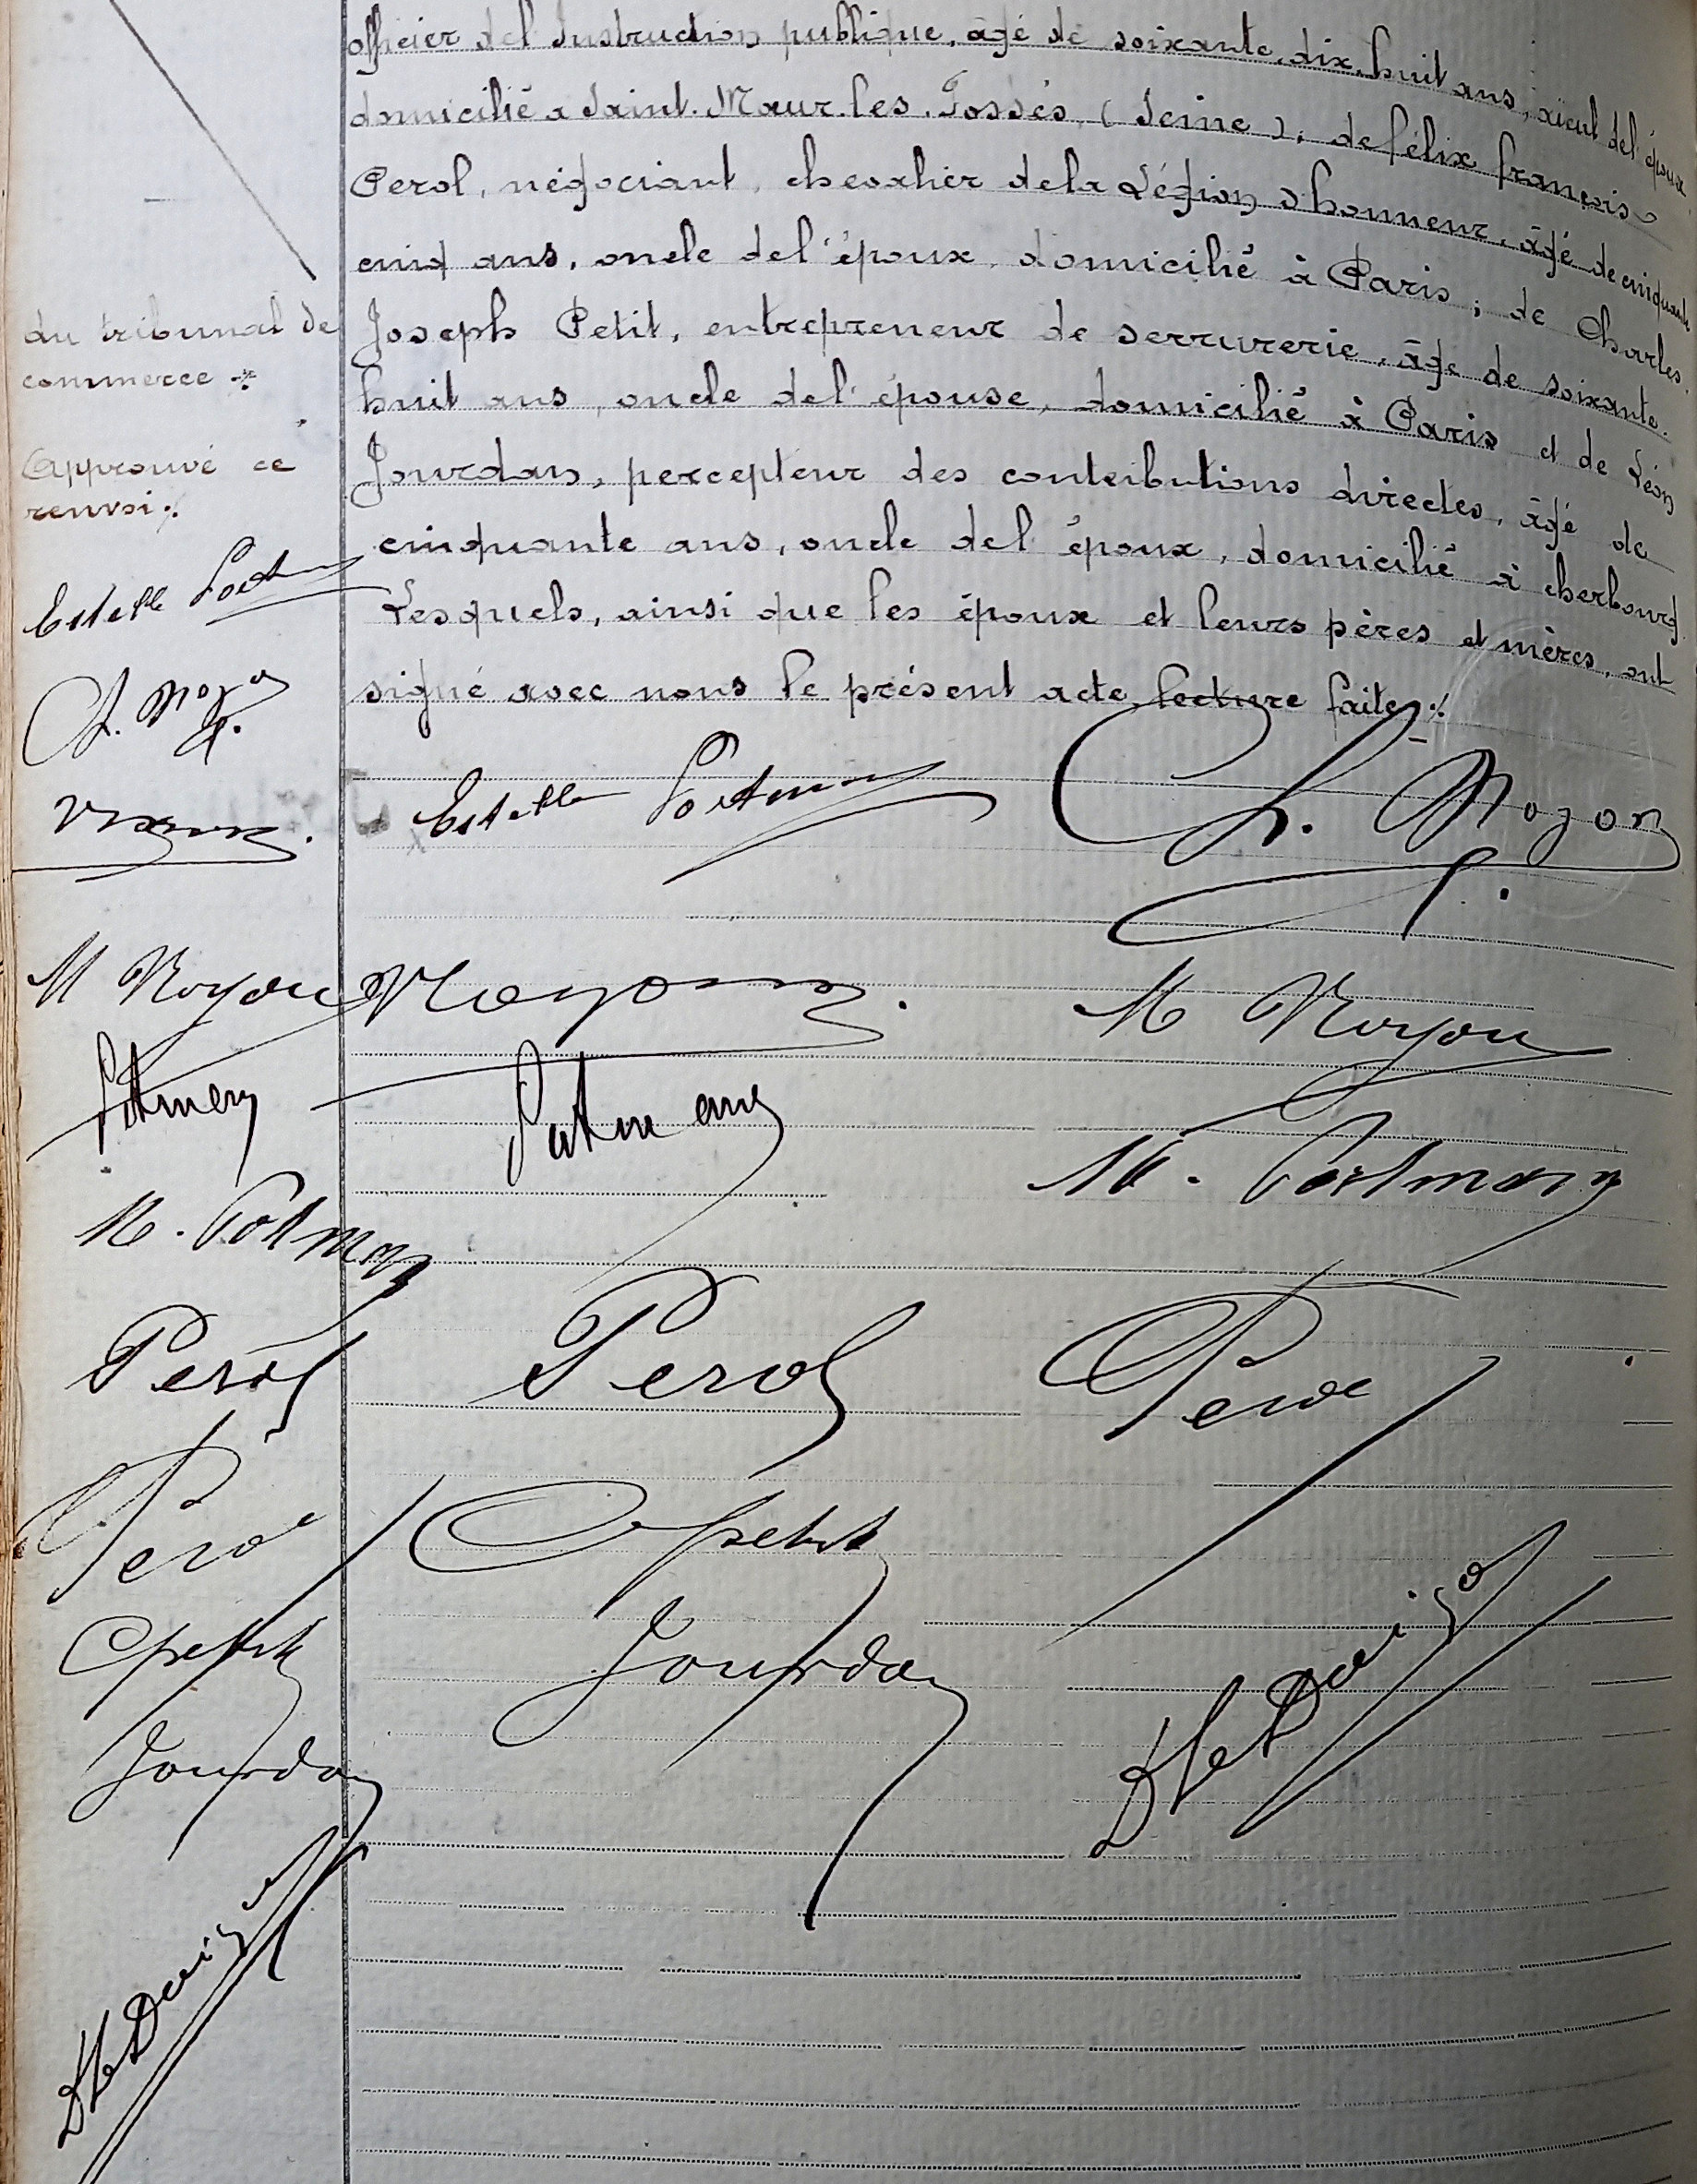 officier de l'Instruction publique, âgé de soixante-dix-huit ans, aïeul de l'époux
domicilié à Saint-Maur-les-Fossés (Seine); de félix françois
Perol, négociant, chevalier de la Légion d'honneur, âgé de cinquante
cinq ans, oncle de l'époux, domicilié à Paris; de Charles
Joseph Petit, entrepreneur de serrurerie, âgé de soixante-
huit ans, oncle de l'épouse, domicilié à Paris et de Léon
Jourdan, percepteur des contributions directes, âgé de
cinquante ans, oncle de l'époux, domicilié à cherbourg
Lesquels, ainsi que les époux et leurs pères et mères, ont
signé avec nous le présent acte, lecture faite ./.
du tribunal de
commerce ./.
Approuvé ce
renvoi ./.
Estelle Portmann
Ch. Noyon
Noyon
M Noyon
Portmann
M. Portmann
Perol
Perol
C petit
Jourdan
Estelle Portmann
Ch. Noyon
Noyon
M Noyon
Portmann
M. Portmann
Perol
Perol
C petit
Jourdan